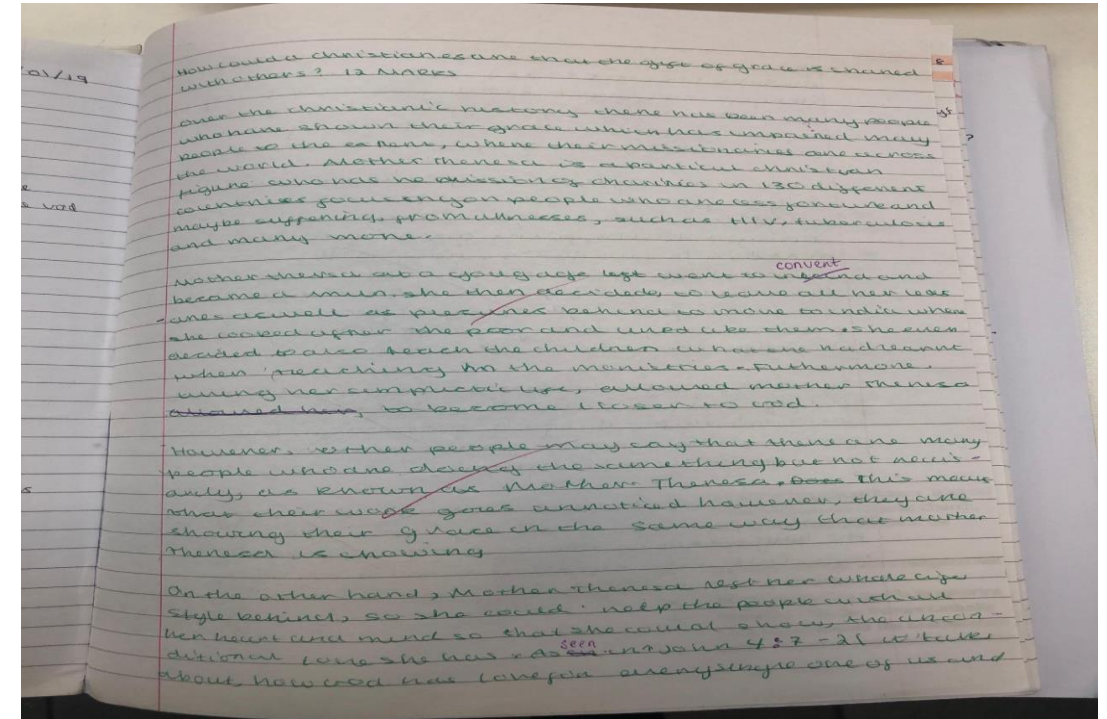 01/19
How could a christian esure that the gift of grace is shared
with others? 12 Marks
over the christianic history there has been many people
who have shown their grace which has impaired many
people to the extent, where their missionaries are across
the world. Mother theresa is a christian
figure who has he mission of charities in 130 different
countries focusing on people who are less fortunate and
maybe suffering, from illnesses, such as HIV, tuberculosis
and many more.
Mother theresa at a young age left went to convent and
became a nun. she then decided, to leave all her
aswell as behind to move to india where
she looked after the poor and lived like them. she even
decided to also teach the children what she had learnt
when in the ministries. Futhermore,
living her simplictic life, allowed mother theresa
to become closer to God.
However, other people may say that there are many
people who are doing the same thing but not neccis-
arily, as known as Mother Theresa. This means
that their work goes unnoticed however, they are
showing their grace in the same way that mother
theresa is showing
On the other hand, Mother Theresa left her whole life
style behind, so she could help the people with all
her heart and mind so that she could show, the uncon-
ditional love she has. As seen in John 4:7-21 it talks
about how God has love for every single one of us and